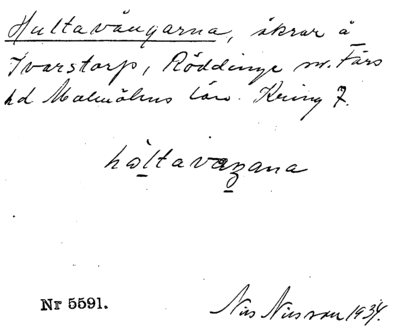 Hultavångarna, åkrar å
Ivarstorp, Röddinge sn. Färs
hd Malmöhus län. Kring 7.
hòltavaʒana
Nr 5591.
Nils Nilsson 1934.